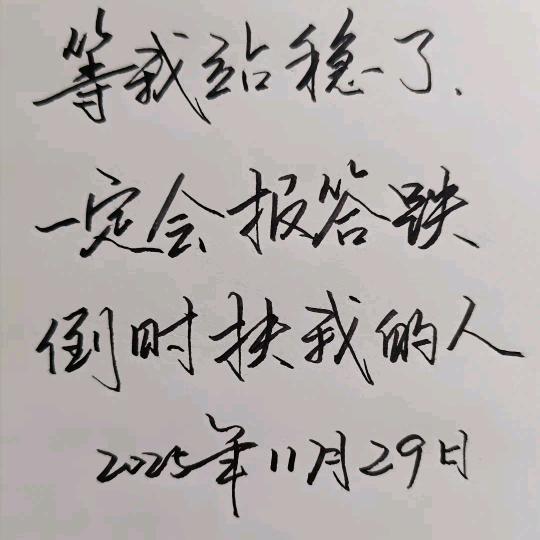 等我站稳了.
一定会报答跌
倒时扶我的人
2025年11月29日